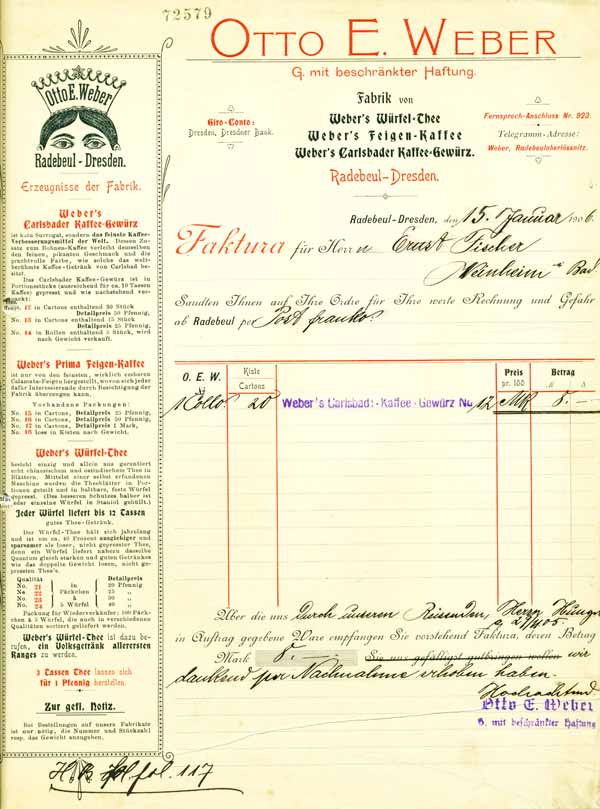 72579
OTTO E. WEBER
G. mit beschränkter Haftung.
Giro-Conto:
Dresden, Dresdner Bank.
Fabrik von
Weber's Würfel-Thee
Weber's Feigen-Kaffee
Weber's Carlsbader Kaffee-Gewürz.
Radebeul-Dresden.
Fernsprech-Anschluss Nr. 923.
Telegramm-Adresse:
Weber, Radebeuloberlössnitz.
Otto E. Weber
Radebeul-Dresden.
Erzeugnisse der Fabrik.
Weber's
Carlsbader Kaffee-Gewürz
ist kein Surrogat, sondern das feinste Kaffee-
Verbesserungsmittel der Welt. Dessen Zu-
satz zum Bohnen-Kaffee verleiht demselben
den feinen, pikanten Geschmack und die
prachtvolle Farbe, wie solche das welt-
berühmte Kaffee-Getränk von Carlsbad be-
sitzt.
Das Carlsbader Kaffee-Gewürz ist in
Portionsstücke (ausreichend für ca. 10 Tassen
Kaffee) gepresst und wie nachstehend ver-
packt:
12 in Cartons enthaltend 30 Stück
Detailpreis 50 Pfennig,
No. 13 in Cartons enthaltend 15 Stück
Detailpreis 25 Pfennig,
No. 14 in Rollen enthaltend 5 Stück, wird
nach Gewicht verkauft.
Weber's Prima Feigen-Kaffee
ist nur von den feinsten, wirklich essbaren
Calamata-Feigen hergestellt, wovon sich jeder
dafür Interessierende durch Besichtigung der
Fabrik überzeugen kann.
Vorhandene Packungen:
No. 15 in Cartons, Detailpreis 25 Pfennig,
No. 16 in Cartons, Detailpreis 50 Pfennig,
No. 17 in Cartons, Detailpreis 1 Mark,
No. 18 lose in Kisten nach Gewicht.
Weber's Würfel-Thee
besteht einzig und allein aus garantiert
echt chinesischem und ostindischem Thee in
Blättern. Mittelst einer selbst erfundenen
Maschine werden die Theeblätter in Por-
tionen geteilt und in haltbare, feste Würfel
gepresst. (Des besseren Schutzes halber ist
jeder einzelne Würfel in Staniol gehüllt.)
Jeder Würfel liefert bis 12 Tassen
gutes Thee-Getränk.
Der Würfel-Thee hält sich jahrelang
und ist um ca. 40 Prozent ausgiebiger und
sparsamer als loser, nicht gepresster Thee,
denn ein Würfel liefert nahezu dasselbe
Quantum gleich starken und guten Getränkes
wie das doppelte Gewicht losen, nicht ge-
pressten Thee's.
Qualität Detailpreis
No. 21 in 20 Pfennig
No. 22 Päckchen 25 „
No. 23 à 30 „
No. 24 5 Würfel 40 „
Packung für Wiederverkäufer: 100 Päck-
chen à 5 Würfel, die auch in verschiedenen
Qualitäten sortiert geliefert werden.
Weber's Würfel-Thee ist dazu be-
rufen, ein Volksgetränk allerersten
Ranges zu werden.
3 Tassen Thee lassen sich
für 1 Pfennig herstellen.
Zur gefl. Notiz.
Bei Bestellungen auf unsere Fabrikate
ist nur nötig, die Nummer und Stückzahl
resp. das Gewicht anzugeben.
Radebeul-Dresden, den 15. Januar 1906
Faktura für Herrn Ernst Fischer
Bad
Sandten Ihnen auf Ihre Ordre für Ihre werte Rechnung und Gefahr
ab Radebeul per Post franko.
O. E. W. Kiste Cartons Preis pr. 100 Betrag M ₰
1 Collo 20 Weber's Carlsbad.-Kaffee-Gewürz No. 12 Mk 8.—
Über die uns durch unseren Reisenden, Herrn
in Auftrag gegebene Ware empfangen Sie vorstehend Faktura, deren Betrag
Mark 8.— Sie uns gefälligst gutbringen wollen wir
dankend per Nachnahme erhoben haben.
Hochachtend
Otto E. Weber
G. mit beschränkter Haftung
fol. 117